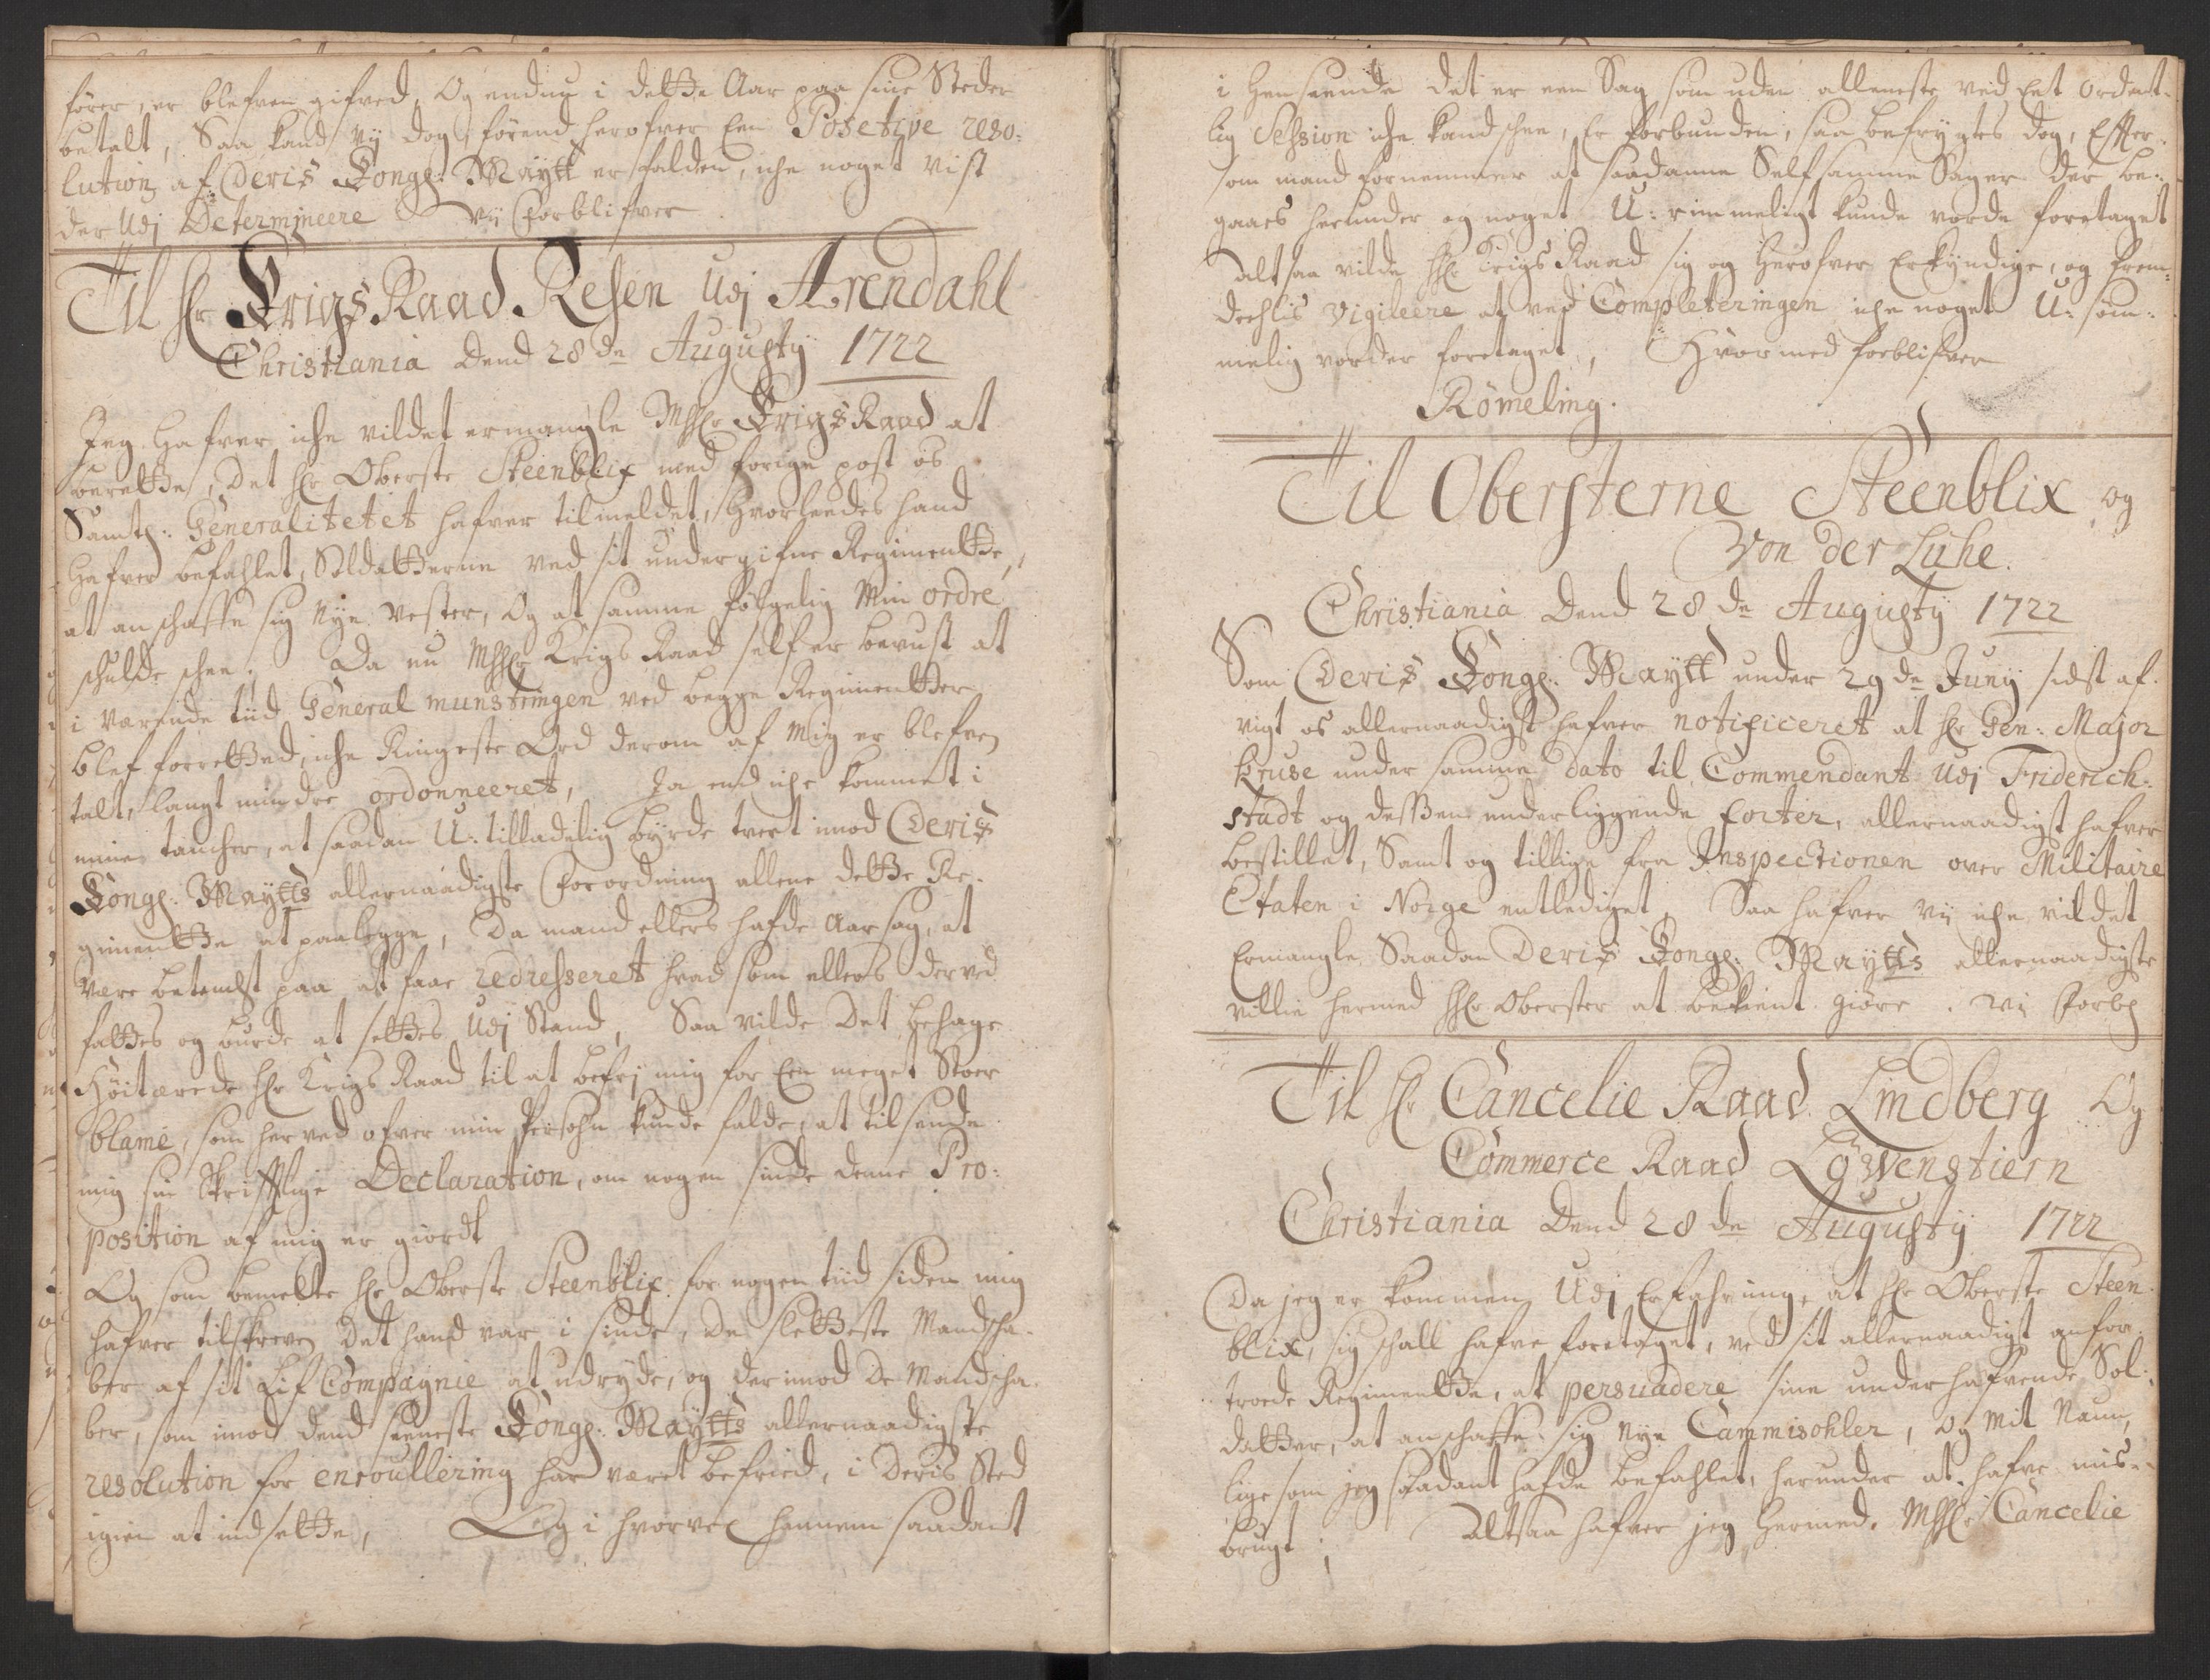 fører, er blefven gifved, Og endnu i dette Aar paa sine Steder
betalt, Saa kand vy dog, førend herofver Een Posetive reso:
lution af Deris Kongl: Maytt er falden, iche noget vist
der Udj Determineere Vy Forblifver
Til Hr Krigs Raad Resen Udj Arendahl
Christiania Dend 28de Augusty 1722
Jeg hafver iche vildet ermangle MhHr Krigs Raad at
berette, Det Hr Oberste Steenblix med forige post os
Samtl: Generalitetet hafver tilmeldet, hvorleedes hand
hafver befahlet, Soldatterne ved sit undergifne Regimentte,
at anschaffe sig Nye Vester, Og at samme følgelig Min ordre
schulde schee; Da nu MhHr Krigs Raad self er bevust at
i værende tiid General munstringen ved begge Regimentter
blef forretted, iche Ringeste Ord derom af Mig er blefven
talt, langt mindre ordonneeret, Ja end iche kommet i
mine tancher, at saadan U: tilladelig byrde tvert imod Deris
Kongl: Maytts allernaadigste Forordning allene dette Re-
gimentte at paalegge, Da mand ellers hafde Aarsag, at
være betencht paa at faae redresseret hvad som ellers derved
fattes og burde at settes Udj Stand, Saa vilde Det behage
Høitærede Hr Krigs Raad til at befrj mig for Een meget Stoer
blame, som herved ofver min Persohn kunde falde, at tilsende
mig sin Skrifftlige Declaration, om nogen sinde denne Pro:
position af mig er giordt
Og som bemelte Hr Oberste Steenblix for nogen tiid siden mig
hafver tilskreven Det hand var i sinde, de sletteste Mandscha-
ber af sit Lif Compagnie at udryde, og derimod De Mandscha-
ber, som imod Dend seeneste Kongl: Maytts allernaadigste
resolution for enroullering har været befried, i Deris Sted
igien at indsette, Og i hvorvel hannem saadant
i henseende Det er een Sag som uden alleneste ved Eet Ordent-
lig Session iche kand schee, Er forbunden, saa befrygtes dog, Effter-
som mand fornemmer at saadanne Selfsamme Sager der be-
gaaes herunder og noget U: rimmeligt kunde vorde foretaget
altsaa vilde Hr Krigs Raad sig og herofver Erkyndige, og frem-
deehlis vigileere at ved Completeringen iche noget U: søm-
melig vorder foretaget, Hvormed forblifver
Römeling.
Til Obersterne Steenblix og
Von der Lühe.
Christiania Dend 28de Augusty 1722
Som Deris Kongl: Maytt under 29de Juny sidst af-
vigt os allernaadigst hafver notificeret at Hr Gen: Major
Kruse under samme dato til Commendant Udj Friderich-
stadt og dessen underliggende forter, allernaadigst hafver
bestillet, Samt og tillige fra Inspectionen over Militaire
Etaten i Norge entlediget, Saa hafver vy iche vildet
Ermangle Saadan Deris Kongl: Maytts allernaadigste
villie hermed Hr Oberster at bekient giøre. Vi Forbl
Til Hr Cancelie Raad Lindberg Og
Commerce Raad Löwenstiern
Christiania Dend 28de Augusty 1722
Da jeg er kommen Udj Erfahring, at Hr Oberste Steen-
blix, sig schall hafve foretaget, ved sit allernaadigst anfor-
troede Regimentte, at persuadere sine underhafvende Sol-
datter, at anschaffe sig Nye Cammisohler, og Mit Naun,
lige som jeg saadant hafde befahlet, herunder at hafve mis-
brugt; Altsaa hafver jeg hermed. MhHr Cancelie